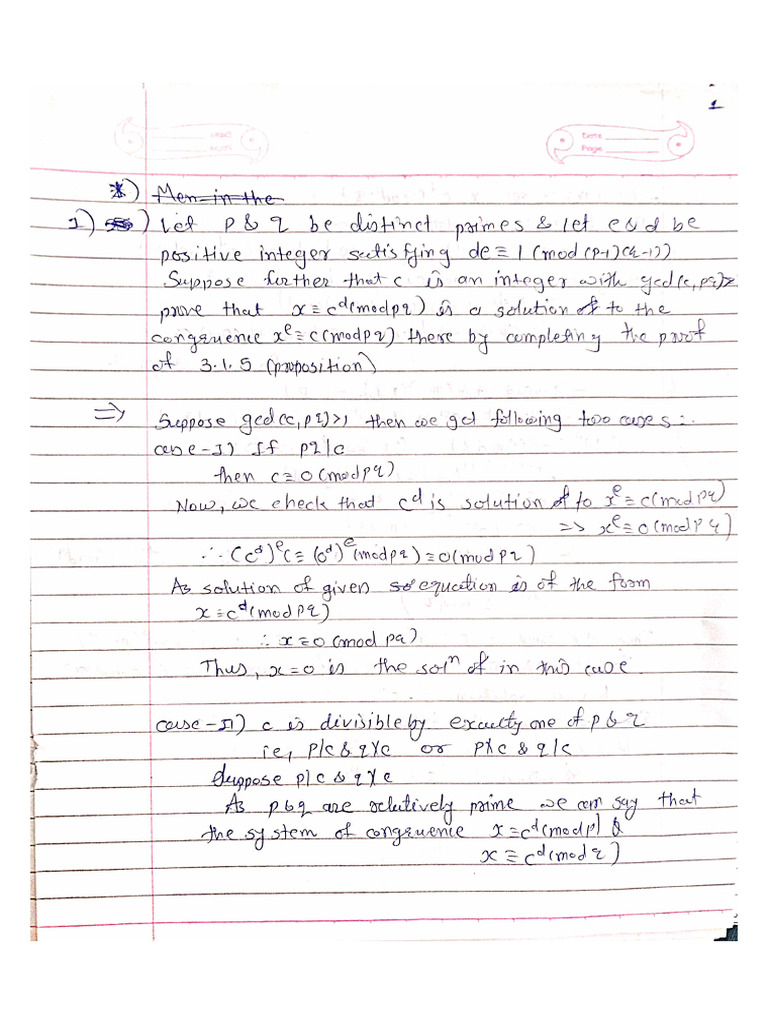 1
Date
Page
*) Men in the
1) ) Let p & q be distinct primes & let e & d be
positive integer satisfying de ≡ 1 (mod (p-1)(q-1))
Suppose further that c is an integer with gcd(c,pq)>
prove that x ≡ c^d (mod pq) is a solution of to the
congruence x^e ≡ c (mod pq) there by completing the proof
of 3.1.5 (proposition)
⇒ Suppose gcd(c,pq)>1 then we get following two cases:-
case-I) If pq|c
then c ≡ 0 (mod pq)
Now, we check that c^d is solution of to x^e ≡ c (mod pq)
=> x^e ≡ 0 (mod pq)
∴ (c^d)^e ≡ (0^d)^e (mod pq) ≡ 0 (mod pq)
As solution of given so equation is of the form
x ≡ c^d (mod pq)
∴ x ≡ 0 (mod pq)
Thus, x=0 is the sol^n of in this case
case-II) c is divisible by exactly one of p & q
ie, p|c & q∤c or p∤c & q|c
Suppose p|c & q∤c
As p & q are relatively prime we can say that
the system of congruence x ≡ c^d (mod p) &
x ≡ c^d (mod q)